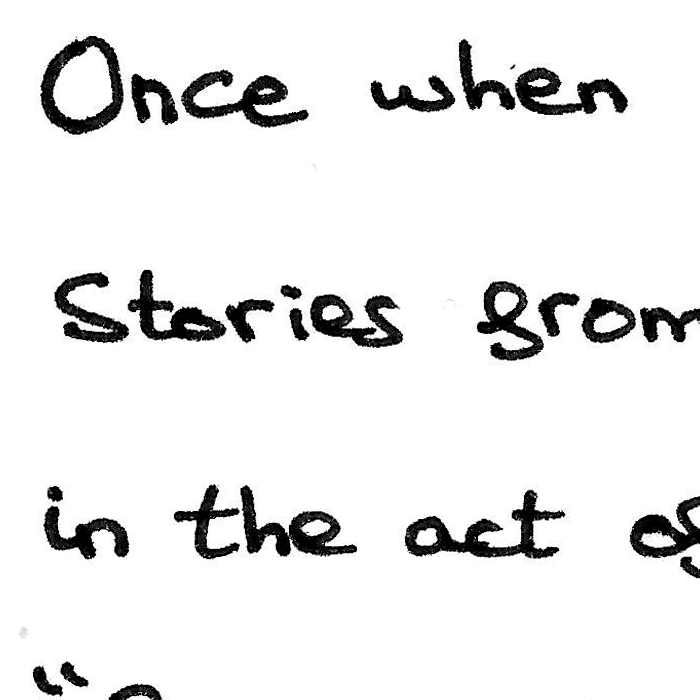 Once when
Stories from
in the act of